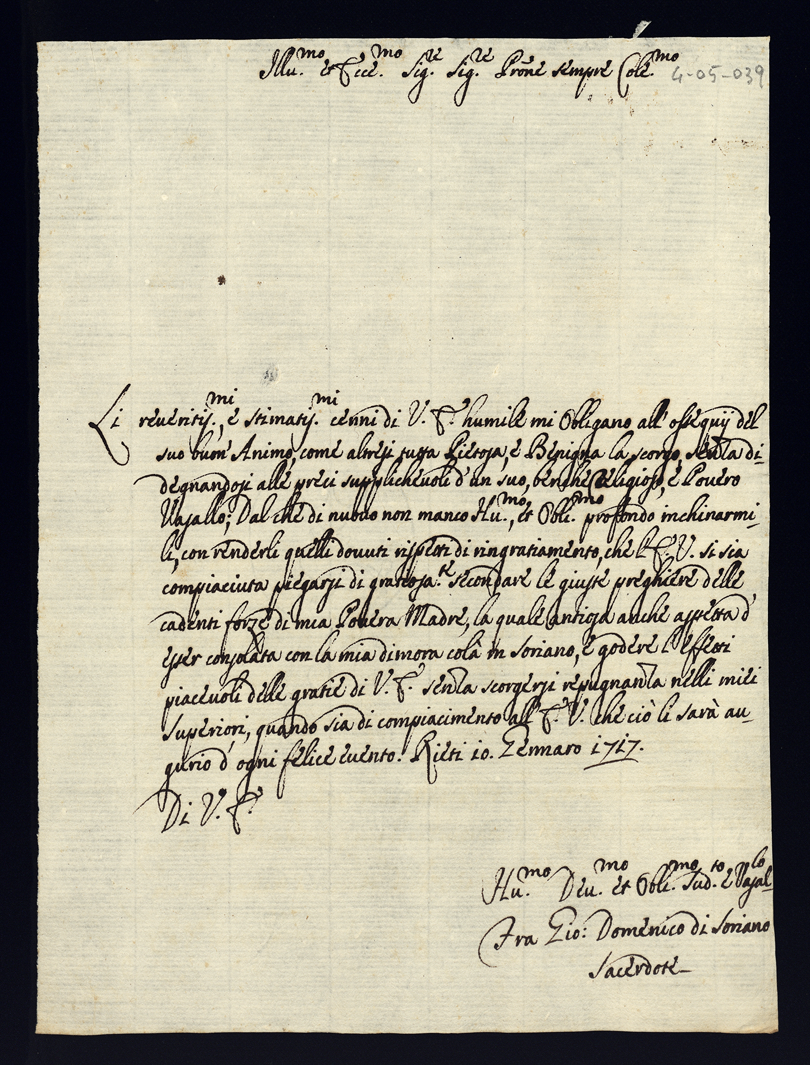 Illu.mo et Ecce.mo Sig.re Sig.re Prone sempre Cole.mo
4-05-039
Li reveritis.mi, e stimatis.mi cenni di V. E. humile mi Obligano all'ossequij del
suo buon Animo, come altresi tutta Pietosa, e Benigna la scorgo, senza di-
degnandosi alle preci supplichevoli d'un suo, benche Religioso, e Povero
Vasallo; Dal che di nuovo non manco Hu.mo, et Obli.mo profondo inchinarmi-
li, con renderli quelli dovuti rispetti di ringratiamento, che l'E. V. si sia
compiaciuta piegarsi di gratiosa.te secondare le giuste preghiere delle
cadenti forze di mia Povera Madre, la quale antiosa anche aspetta d'
esser consolata con la mia dimora colà in Soriano, e godere l'effetti
piacevoli delle gratie di V. E. senza scorgersi repugnanza nelli miei
Superiori, quando sia di compiacimento all'E. V. che ciò li sarà au-
gurio d'ogni felice evento. Rieti 10. Gennaro 1717.
Di V. E.
Hu.mo Deu.mo et Obli.mo Sud.to e Vasal-lo
Fra Gio: Domenico di Soriano
Sacerdote